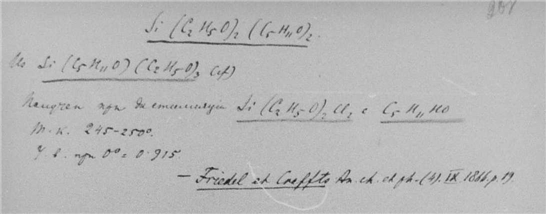 Si (C2H5O)2 (C5H11O)2.
Из Si (C5H11O) (C2H5O)3 (cf)
Получен при дистилляции Si (C2H5O)2Cl2 с C5H11HO
Т. к. 245-250°.
У. в. при 0° = 0.915
— Friedel et Crafts An. ch. et ph. (4). IX. 1866, p. 19.